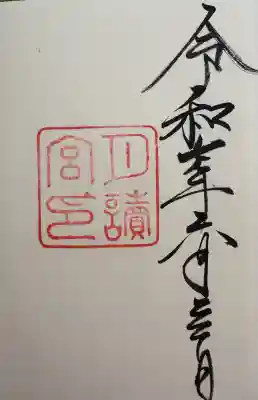 令和元年六月三日
月讀宮印